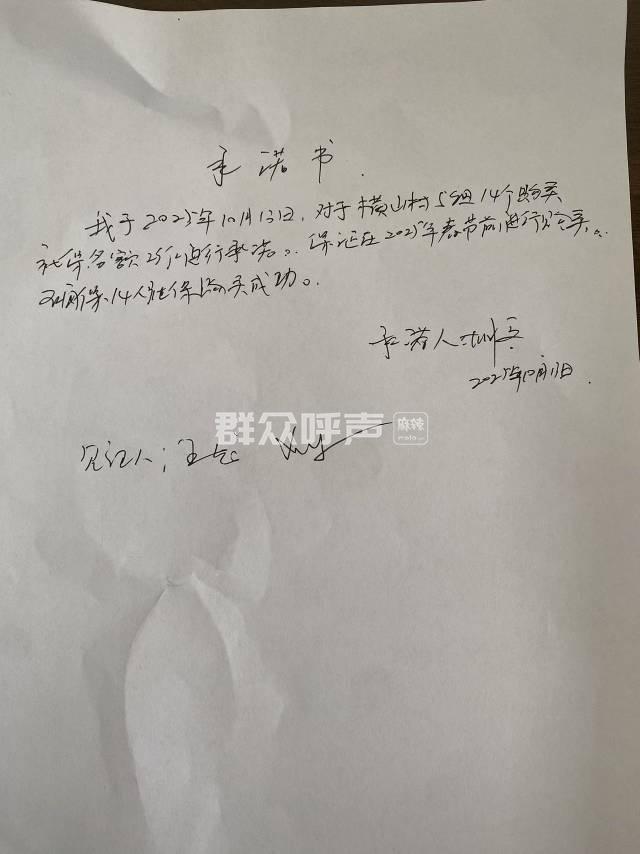 承诺书.
我于2025年10月13日，对于横山村5组14个购买
社保名额25个进行承诺。保证在2025年春节前进行购买。
确保14人社保购买成功。
承诺人:
2025年10月13日.
群众呼声 麻辣
见证人: